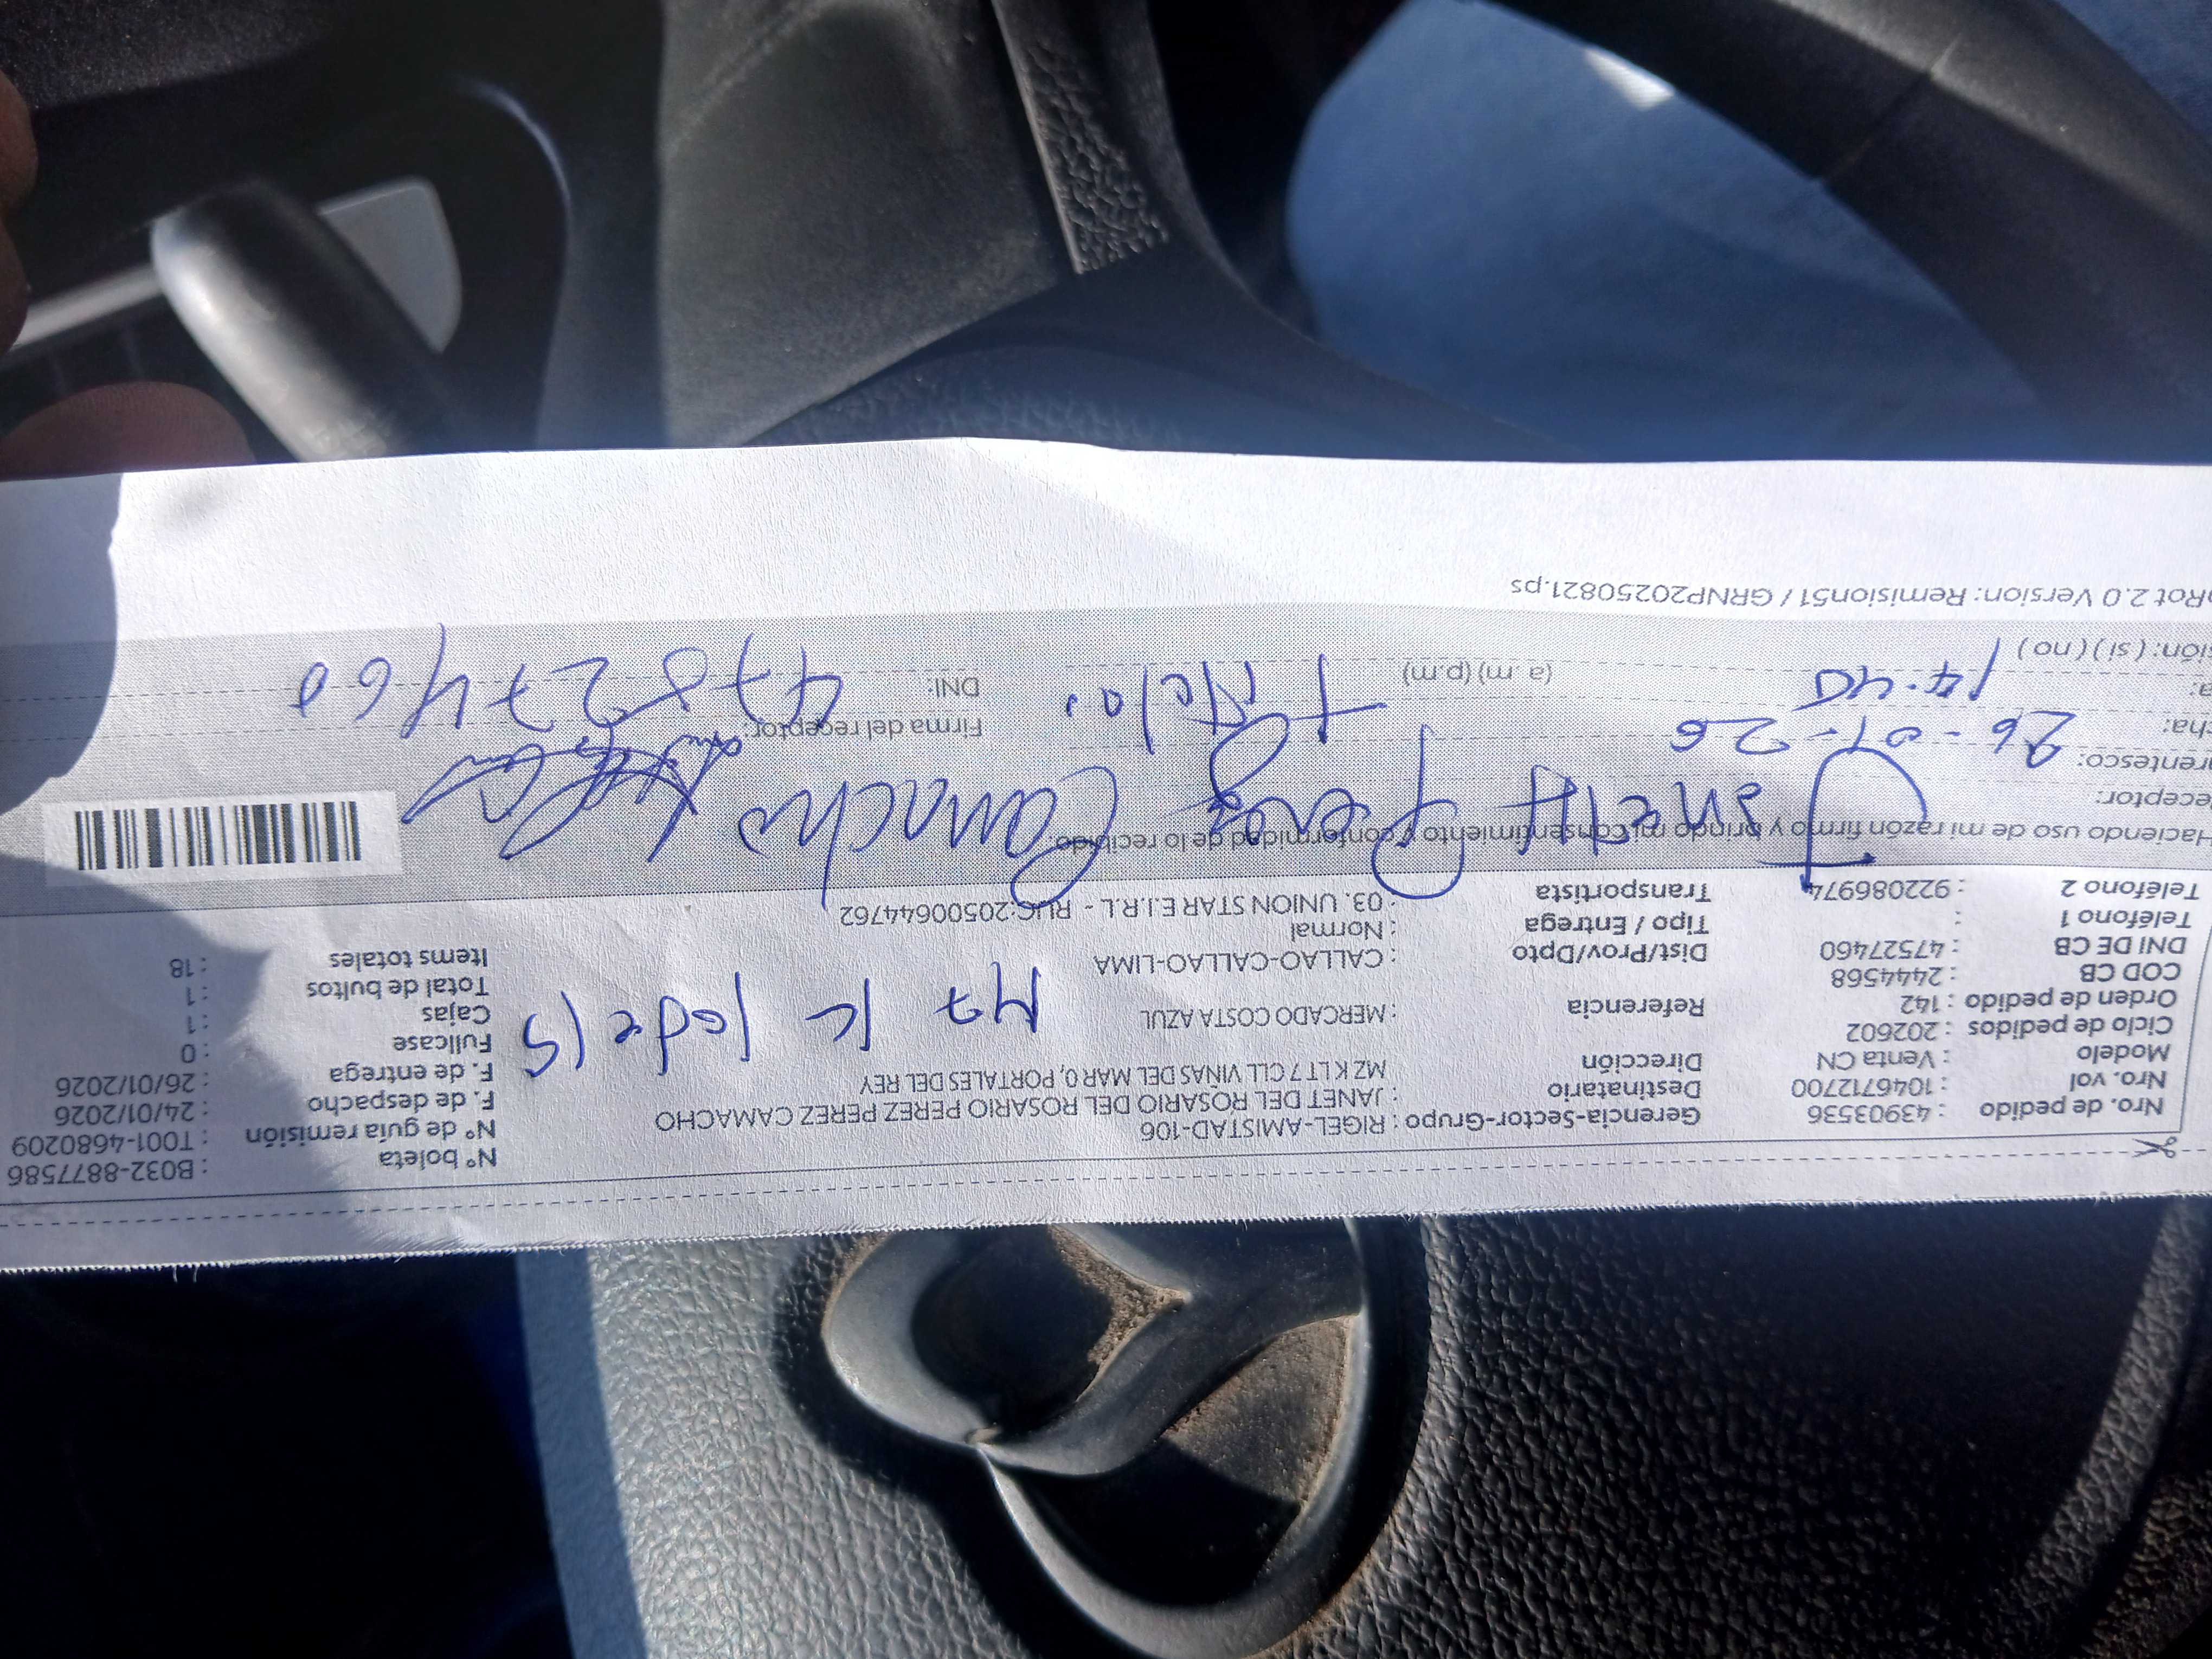 Nro. de pedido : 43903536 Gerencia-Sector-Grupo : RIGEL-AMISTAD-106 N° boleta : B032-8877586
Nro. vol : 1046712700 Destinatario : JANET DEL ROSARIO DEL ROSARIO PEREZ PEREZ CAMACHO N° de guía remisión : T001-4680209
Modelo : Venta CN Dirección MZ K LT 7 CLL VIÑAS DEL MAR 0, PORTALES DEL REY F. de despacho : 24/01/2026
Ciclo de pedidos : 202602 F. de entrega : 26/01/2026
Orden de pedido : 142 Referencia : MERCADO COSTA AZUL Fullcase : 0
Mz K
COD CB : 2444568 Cajas : 1
DNI DE CB : 47527460 Dist/Prov/Dpto : CALLAO-CALLAO-LIMA Total de bultos : 1
Teléfono 1 : Tipo / Entrega : Normal Items totales : 18
Teléfono 2 : 922086974 Transportista : 03. UNION STAR E.I.R.L - RUC:20500644762
Haciendo uso de mi razón firmo y brindo mi consentimiento y conformidad de lo recibido.
eceptor: Janett Perez Camacho
rentesco:
cha: 26-01-26 Firma del receptor:
a: 14:40 (a .m) (p.m) DNI: 47527460
sión: ( si ) ( no )
Rot 2.0 Version: Remision51 / GRNP20250821.ps